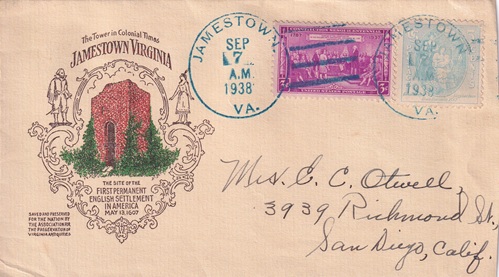 The Tower in Colonial Times
JAMESTOWN VIRGINIA
THE SITE OF THE
FIRST PERMANENT
ENGLISH SETTLEMENT
IN AMERICA
MAY 13, 1607
SAVED AND PRESERVED
FOR THE NATION BY
THE ASSOCIATION FOR
THE PRESERVATION OF
VIRGINIA ANTIQUITIES
JAMESTOWN
SEP
7
A.M.
1938
VA.
3¢
3¢
JAMESTOWN
SEP
7
1938
VA.
Mrs. C. C. Otwell,
3939 Richmond St.,
San Diego, Calif.